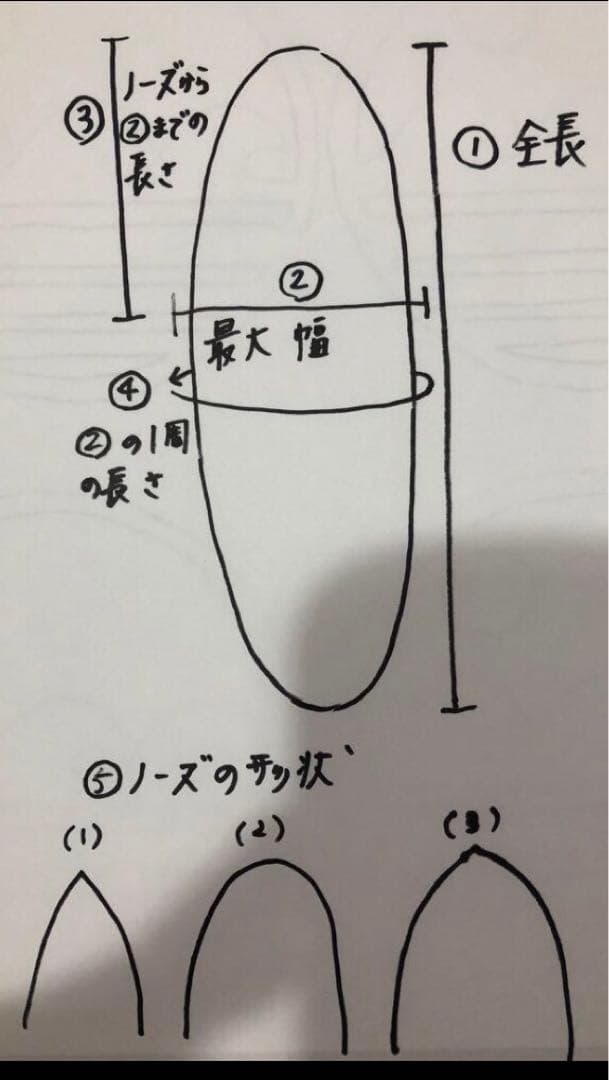 ③ ノーズから
②までの
長さ
① 全長
②
最大 幅
④
②の1周
の長さ
⑤ノーズの形状
(1)
(2)
(3)